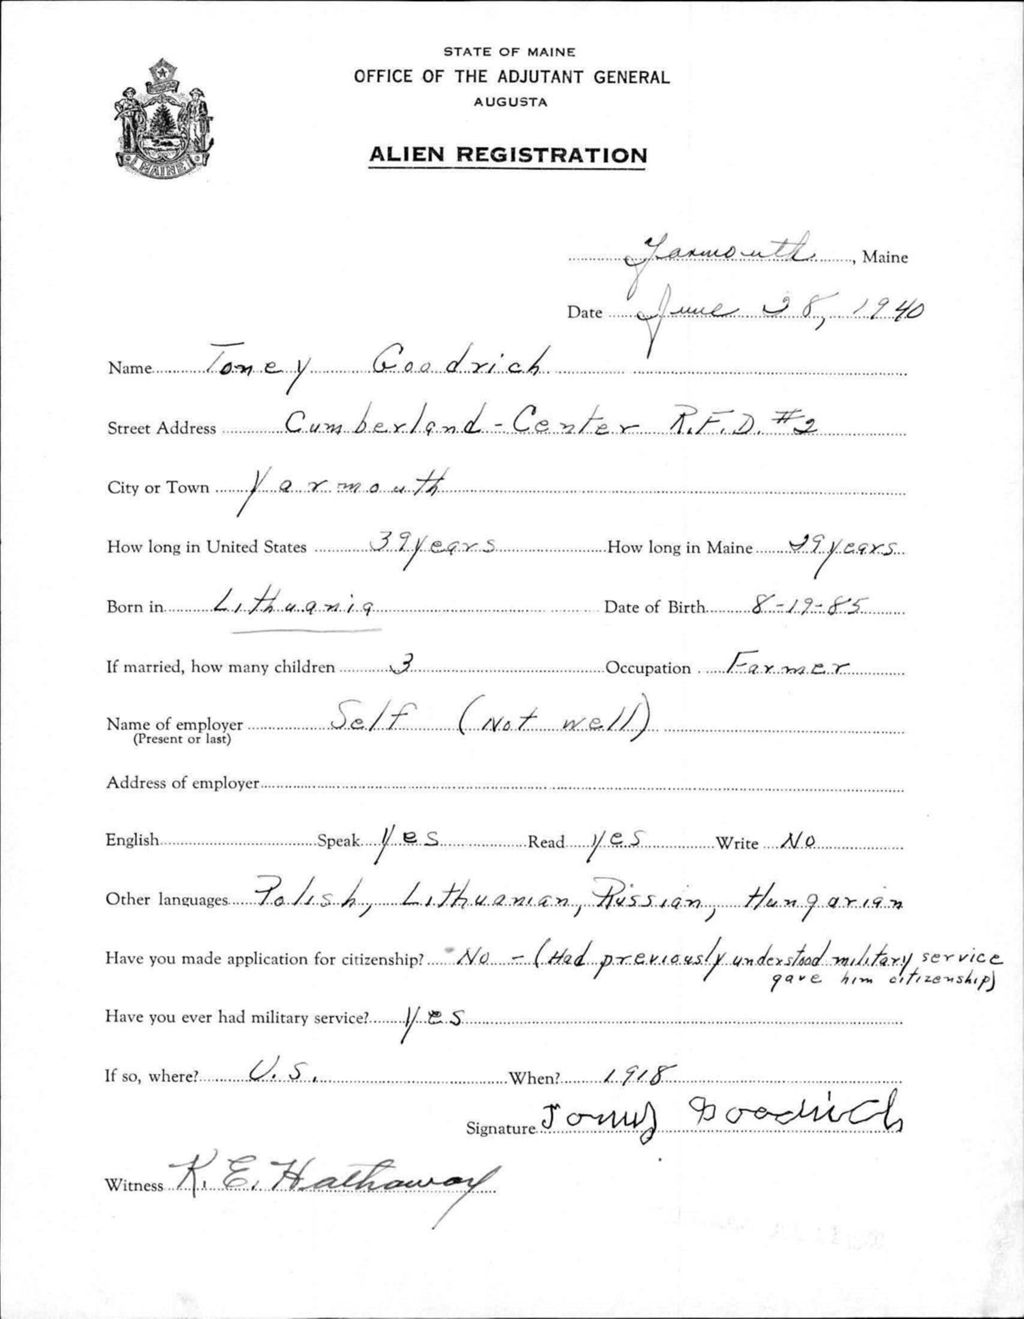 STATE OF MAINE
OFFICE OF THE ADJUTANT GENERAL
AUGUSTA
ALIEN REGISTRATION
MAINE
Yarmouth, Maine
Date June 28, 1940
Name Toney Goodrich
Street Address Cumberland-Center R.F.D. #2
City or Town Yarmouth
How long in United States 39 years How long in Maine 29 years
Born in Lithuania Date of Birth 8-19-85
If married, how many children 3 Occupation Farmer
Name of employer Self (Not well)
(Present or last)
Address of employer
English Speak yes Read yes Write No
Other languages Polish, Lithuanian, Russian, Hungarian
Have you made application for citizenship? No - (Had previously understood military service
gave him citizenship)
Have you ever had military service? yes
If so, where? U.S. When? 1918
Signature Toney Goodrich
Witness K. E. Hathaway